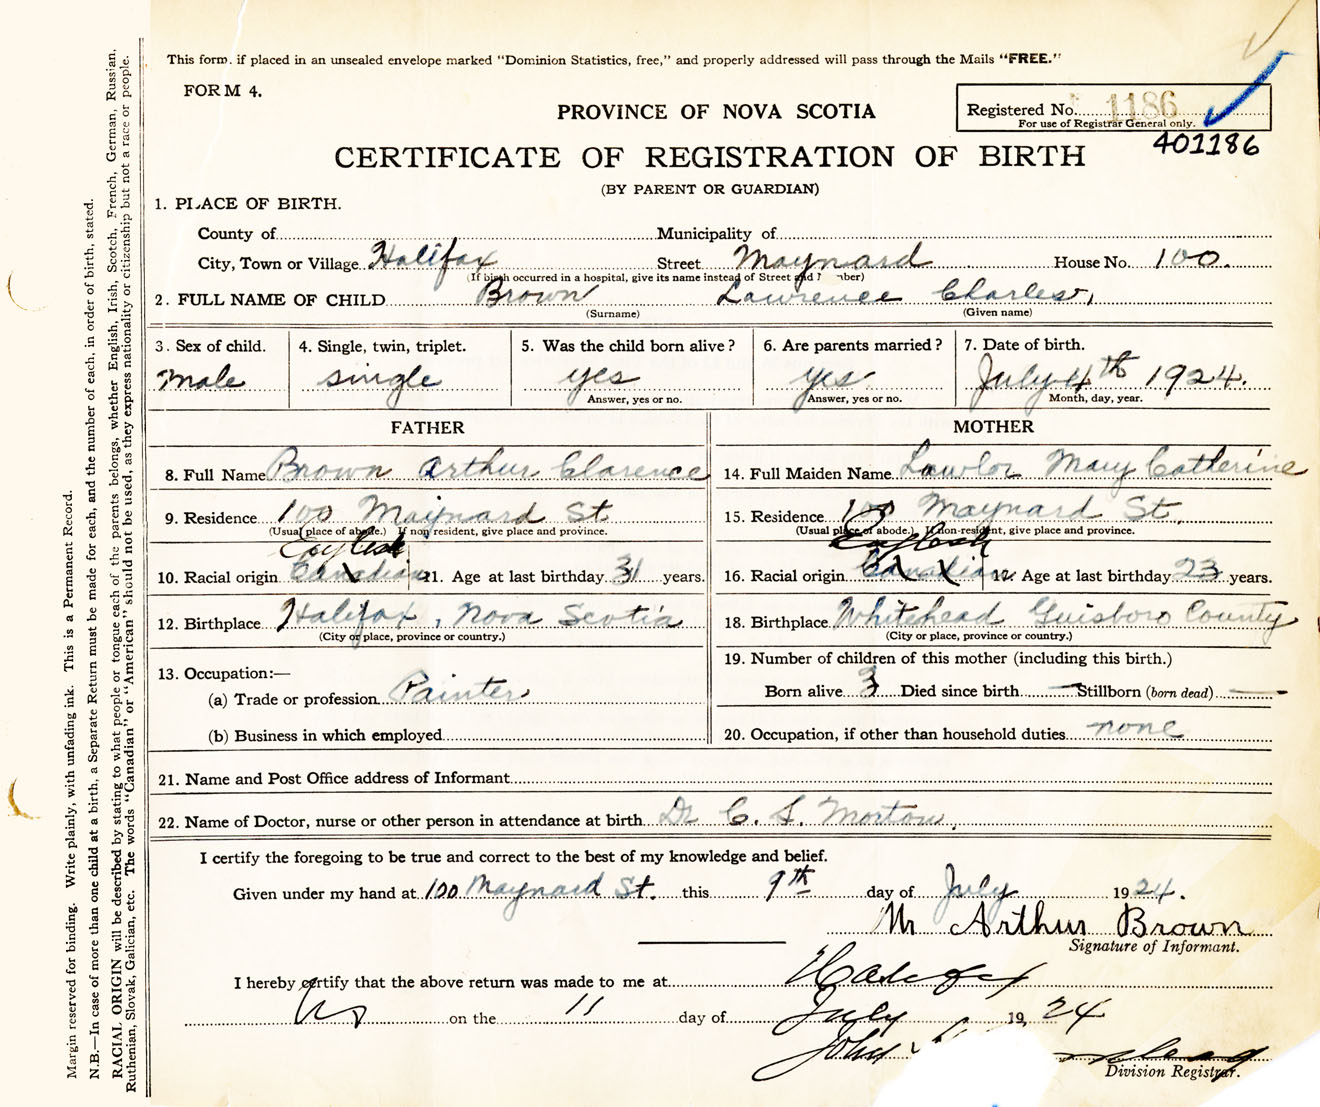 This form, if placed in an unsealed envelope marked "Dominion Statistics, free," and properly addressed will pass through the Mails "FREE."
FORM 4.
PROVINCE OF NOVA SCOTIA
Registered No. 1186
For use of Registrar General only.
401186
CERTIFICATE OF REGISTRATION OF BIRTH
(BY PARENT OR GUARDIAN)
1. PLACE OF BIRTH.
County of Municipality of
City, Town or Village Halifax Street Maynard House No. 100.
(If birth occurred in a hospital, give its name instead of Street and
2. FULL NAME OF CHILD Brown Lawrence Charles,
(Surname) (Given name)
3. Sex of child. 4. Single, twin, triplet. 5. Was the child born alive? 6. Are parents married? 7. Date of birth.
Male single yes yes July 4th 1924.
Answer, yes or no. Answer, yes or no. Month, day, year.
FATHER MOTHER
8. Full Name Brown Arthur Clarence 14. Full Maiden Name Lawlor Mary Catherine
9. Residence 100 Maynard St 15. Residence 100 Maynard St.
(Usual place of abode.) If non resident, give place and province. (Usual place of abode.) If non-resident, give place and province.
English English
10. Racial origin Canadian 11. Age at last birthday 31 years. 16. Racial origin Canadian Age at last birthday 23 years.
12. Birthplace Halifax, Nova Scotia 18. Birthplace Whitehead Guisboro County
(City or place, province or country.) (City or place, province or country.)
13. Occupation:— 19. Number of children of this mother (including this birth.)
(a) Trade or profession Painter Born alive 3 Died since birth — Stillborn (born dead) —
(b) Business in which employed 20. Occupation, if other than household duties none
21. Name and Post Office address of Informant
22. Name of Doctor, nurse or other person in attendance at birth Dr C. S. Morton.
I certify the foregoing to be true and correct to the best of my knowledge and belief.
Given under my hand at 100 Maynard St. this 9th day of July 1924.
Mr Arthur Brown
Signature of Informant.
I hereby certify that the above return was made to me at Halifax
NS on the 11 day of July 1924
John
Division Registrar.
Margin reserved for binding. Write plainly, with unfading ink. This is a Permanent Record.
N.B.—In case of more than one child at a birth, a Separate Return must be made for each, and the number of each, in order of birth, stated.
RACIAL ORIGIN will be described by stating to what people or tongue each of the parents belongs, whether English, Irish, Scotch, French, German, Russian,
Ruthenian, Slovak, Galician, etc. The words "Canadian" or "American" should not be used, as they express nationality or citizenship but not a race or people.